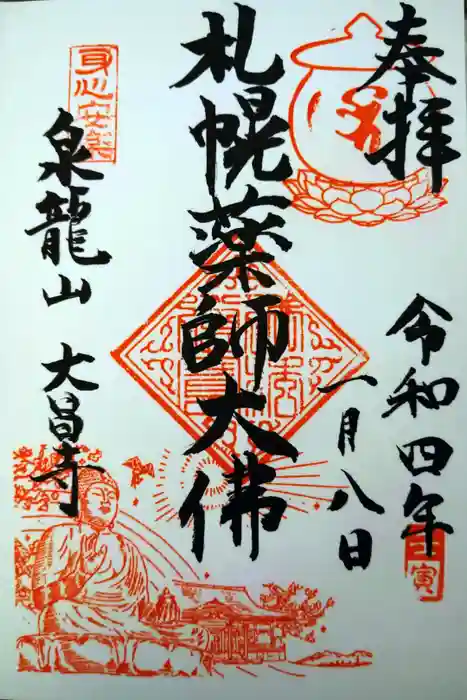 奉拝
令和四年
一月八日
壬寅
札幌薬師大佛
身心安楽
泉龍山 大昌寺